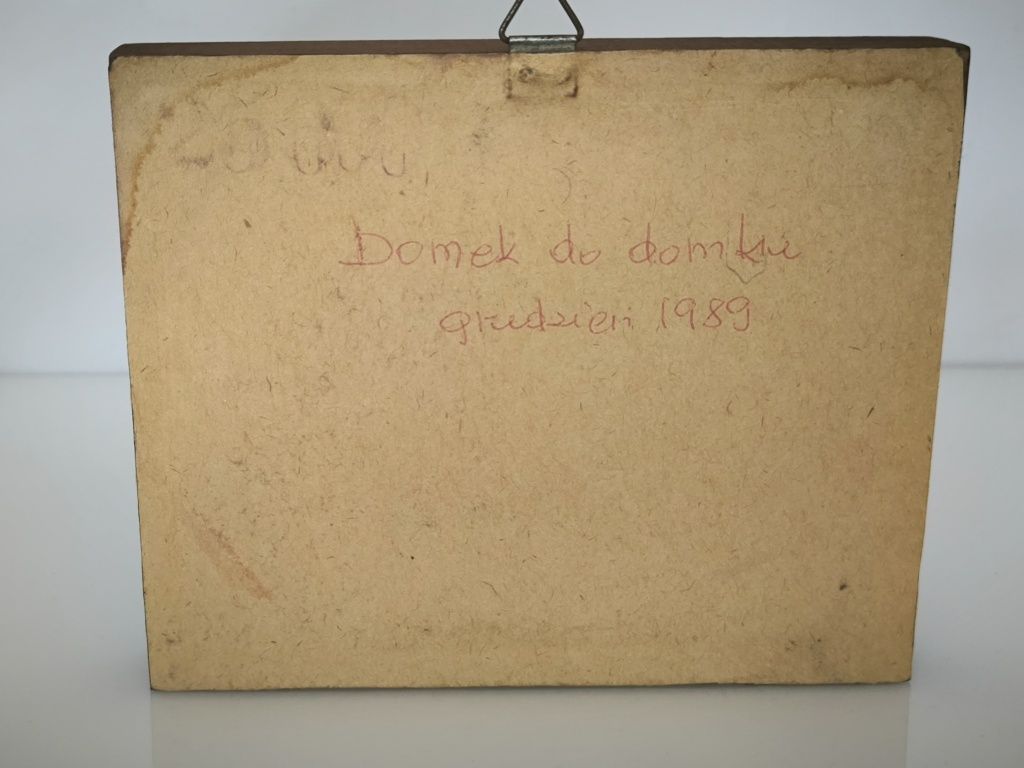 Domek do domku
grudzień 1989